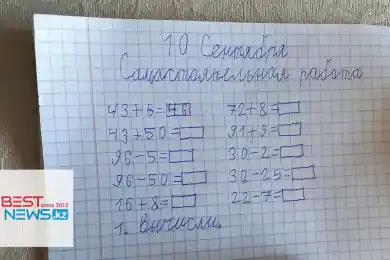 10 Сентября
Самостоятельная работа
43+5=46 72+8=
43+50= 91+9=
96-5= 30-2=
96-50= 30-25=
15+8= 22-7=
1. Вычисли.
BEST
since 2012
NEWS.kz